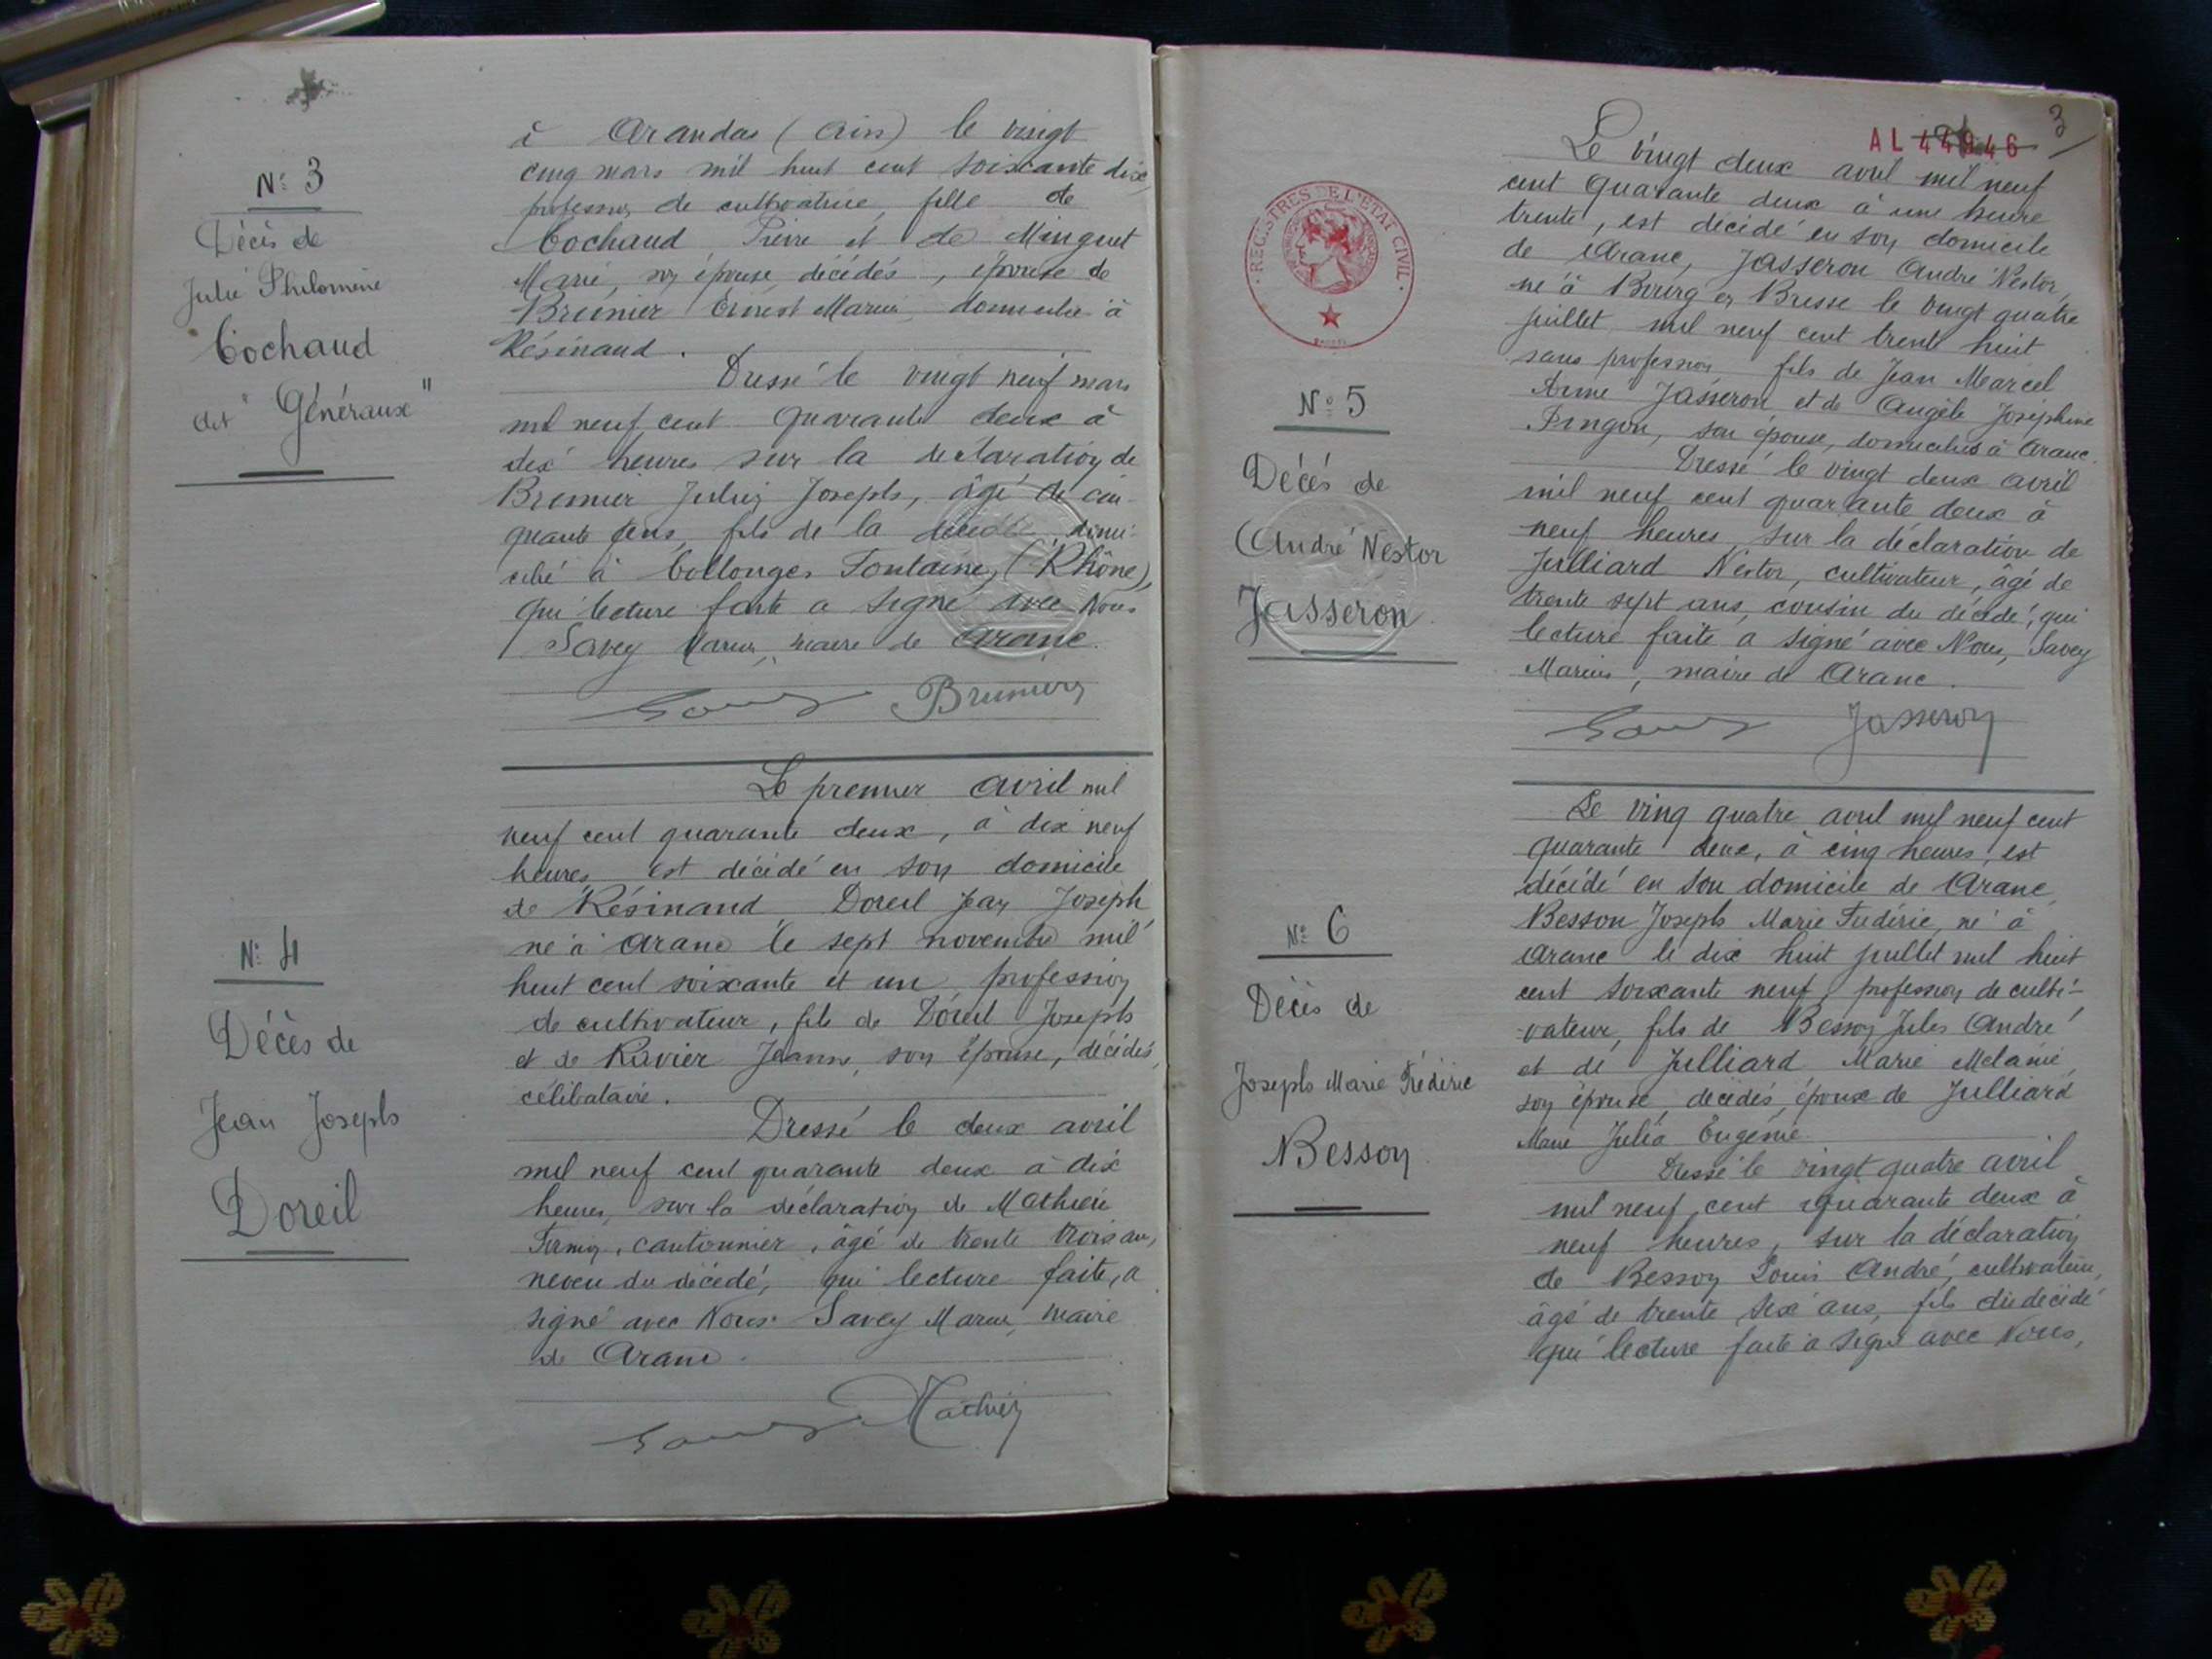 N° 3
Décès de
Julie Philomène
Cochaud
dit "Généraux"
à Arandas (Ain) le vingt
cinq mars mil huit cent soixante dix,
profession de cultivatrice, fille de
Cochaud Pierre et de Minguet
Marie, son épouse, décédés, épouse de
Brunier Ernest Marius, domicilié à
Résinand.
Dressé le vingt neuf mars
mil neuf cent quarante deux à
dix heures sur la déclaration de
Brunier Julien Joseph, âgé de cin-
quante ans, fils de la domi-
cilié à Collonges Fontaines (Rhône),
qui lecture faite a signé avec Nous
Savey Marius, maire de Aranc.
Savey Brunier
N° 4
Décès de
Jean Joseph
Doreil
Le premier avril mil
neuf cent quarante deux, à dix neuf
heures est décédé en son domicile
de Résinand, Doreil Jean Joseph
né à Aranc le sept novembre mil
huit cent soixante et un, profession
de cultivateur, fils de Doreil Joseph
et de Ravier Jeanne, son épouse, décédés,
célibataire.
Dressé le deux avril
mil neuf cent quarante deux à dix
heures, sur la déclaration de Mathieu
Firmin, cantonnier, âgé de trente trois ans,
neveu du décédé, qui lecture faite, a
signé avec Nous Savey Marius, maire
de Aranc.
Savey Mathieu
3
AL 44946
REGISTRES DE L'ETAT CIVIL
N° 5
Décès de
André Nestor
Jasseron
Le vingt deux avril mil neuf
cent quarante deux à une heure
trente, est décédé en son domicile
de Aranc, Jasseron André Nestor,
né à Bourg en Bresse le vingt quatre
juillet mil neuf cent trente huit
sans profession fils de Jean Marcel
Aimé Jasseron, et de Angèle Joséphine
Pingon, son épouse, domiciliés à Aranc.
Dressé le vingt deux avril
mil neuf cent quarante deux à
neuf heures, sur la déclaration de
Julliard Nestor, cultivateur, âgé de
trente sept ans, cousin du décédé, qui
lecture faite a signé avec Nous, Savey
Marius, maire de Aranc.
Savey Jasseron
N° 6
Décès de
Joseph Marie Frédéric
Besson
Le ving quatre avril mil neuf cent
quarante deux, à cinq heures, est
décédé en son domicile de Aranc,
Besson Joseph Marie Frédéric, né à
Aranc le dix huit juillet mil huit
cent soixante neuf, profession de culti-
vateur, fils de Besson Jules André
et de Julliard Marie Mélanie
son épouse, décédés, époux de Julliard
Marie Julia Eugénie.
Dressé le vingt quatre avril
mil neuf cent quarante deux à
neuf heures, sur la déclaration
de Besson Louis André, cultivateur,
âgé de trente six ans, fils du décédé
qui lecture faite a signé avec Nous,